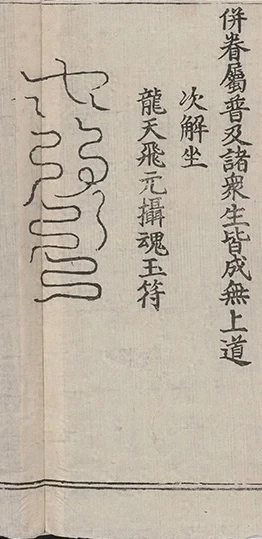 併眷屬普及諸眾生皆成無上道
次解坐
龍天飛元攝魂玉符